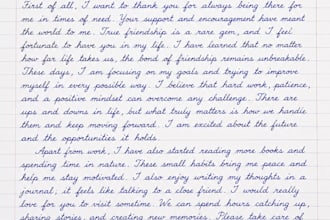 First of all, I want to thank you for always being there for
me in times of need. Your support and encouragement have meant
the world to me. True friendship is a rare gem, and I feel
fortunate to have you in my life. I have learned that no matter
how far life takes us, the bond of friendship remains unbreakable.
These days, I am focusing on my goals and trying to improve
myself in every possible way. I believe that hard work, patience,
and a positive mindset can overcome any challenge. There are
ups and downs in life, but what truly matters is how we handle
them and keep moving forward. I am excited about the future
and the opportunities it holds.
Apart from work, I have also started reading more books and
spending time in nature. These small habits bring me peace and
help me stay motivated. I also enjoy writing my thoughts in a
journal; it feels like talking to a close friend. I would really
love for you to visit sometime. We can spend hours catching up,
sharing stories, and creating new memories. Please take care of